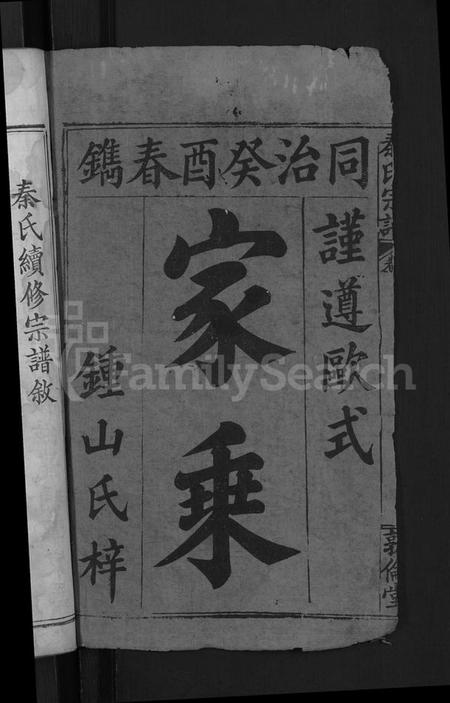 同治癸酉春鐫
謹遵歐式
家乘
鍾山氏梓
秦氏宗譜
倫堂
秦氏續修宗譜敘
FamilySearch